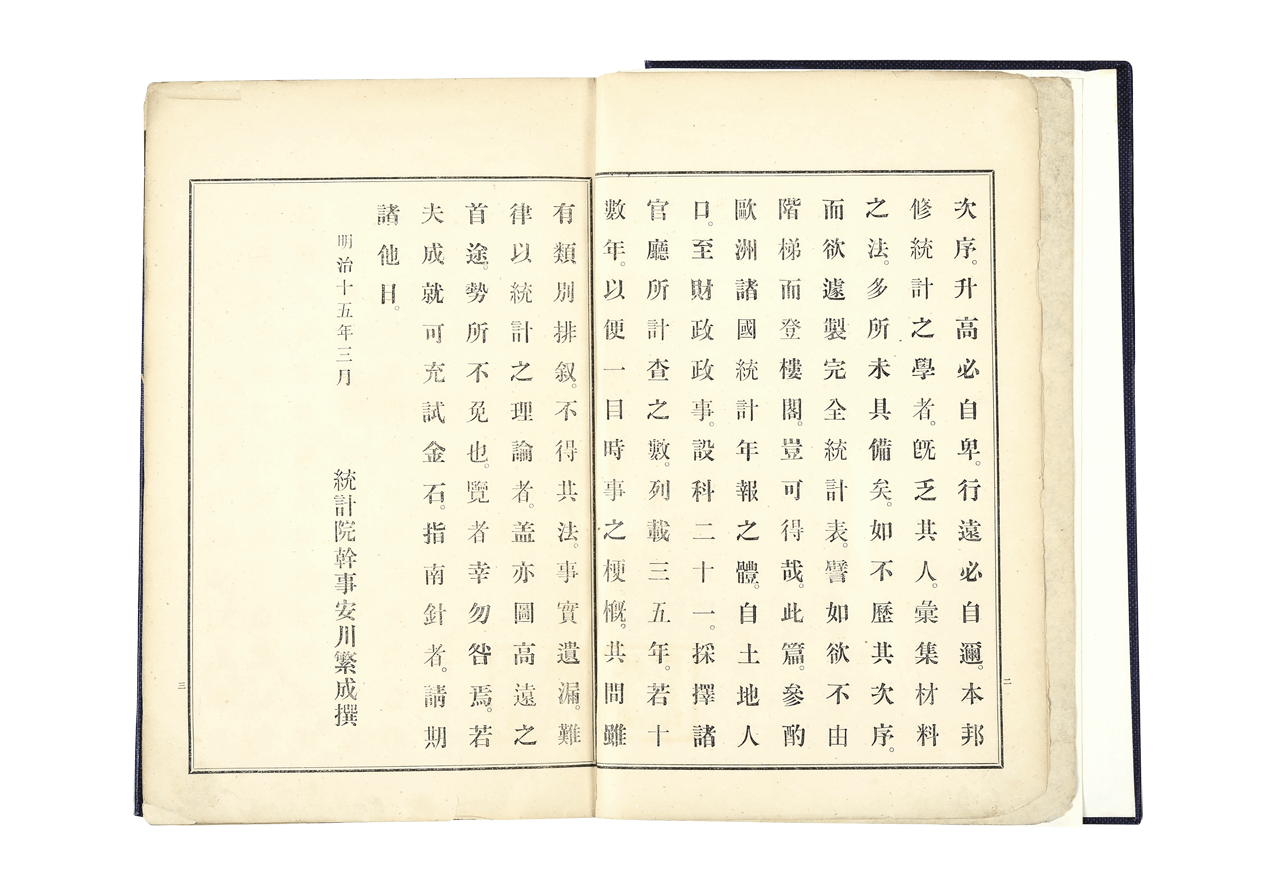 次序。升高必自卑。行遠必自邇。本邦
修統計之學者。旣乏其人。彙集材料
之法。多所未具備矣。如不歷其次序。
而欲遽製完全統計表。譬如欲不由
階梯而登樓閣。豈可得哉。此篇。參酌
歐洲諸國統計年報之體。自土地人
口。至財政政事。設科二十一。採擇諸
官廳所計查之數。列載三五年。若十
數年。以便一目時事之梗槪。其間雖
二
有類別排叙。不得其法。事實遺漏。難
律以統計之理論者。盖亦圖高遠之
首途。勢所不免也。覽者幸勿咎焉。若
夫成就可充試金石。指南針者。請期
諸他日。
明治十五年三月
統計院幹事安川繁成撰
三